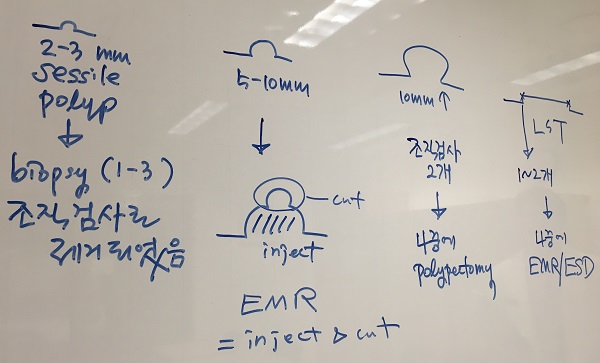 2-3 mm
sessile
polyp
biopsy (1-3)
조직검사로
제거되었음
5-10mm
cut
inject
EMR
= inject & cut
10mm↑
조직검사
2개
나중에
polypectomy
LST
1~2개
나중에
EMR/ESD